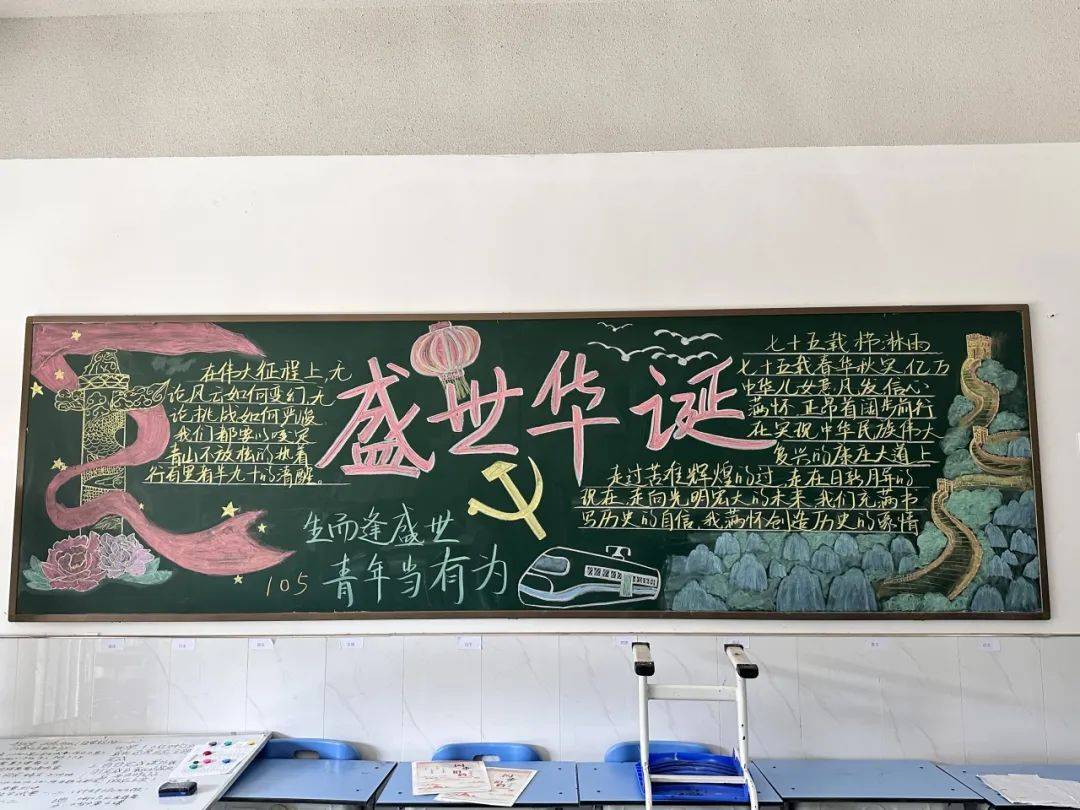 在伟大征程上,无
论风云如何变幻,无
论挑战如何严峻
我们都要以咬定
青山不放松的执着
行百里者半九十的清醒。
盛世华诞
生而逢盛世
青年当有为
105
七十五载栉淋雨
七十五载春华秋实亿万
中华儿女意风发信心
满怀 正昂首阔步前行
在实现中华民族伟大
复兴的康庄大道上
走过苦难辉煌的过,走在日新月异的
现在,走向光明宏大的未来,我们充满书
写历史的自信,我满怀创造历史的豪情